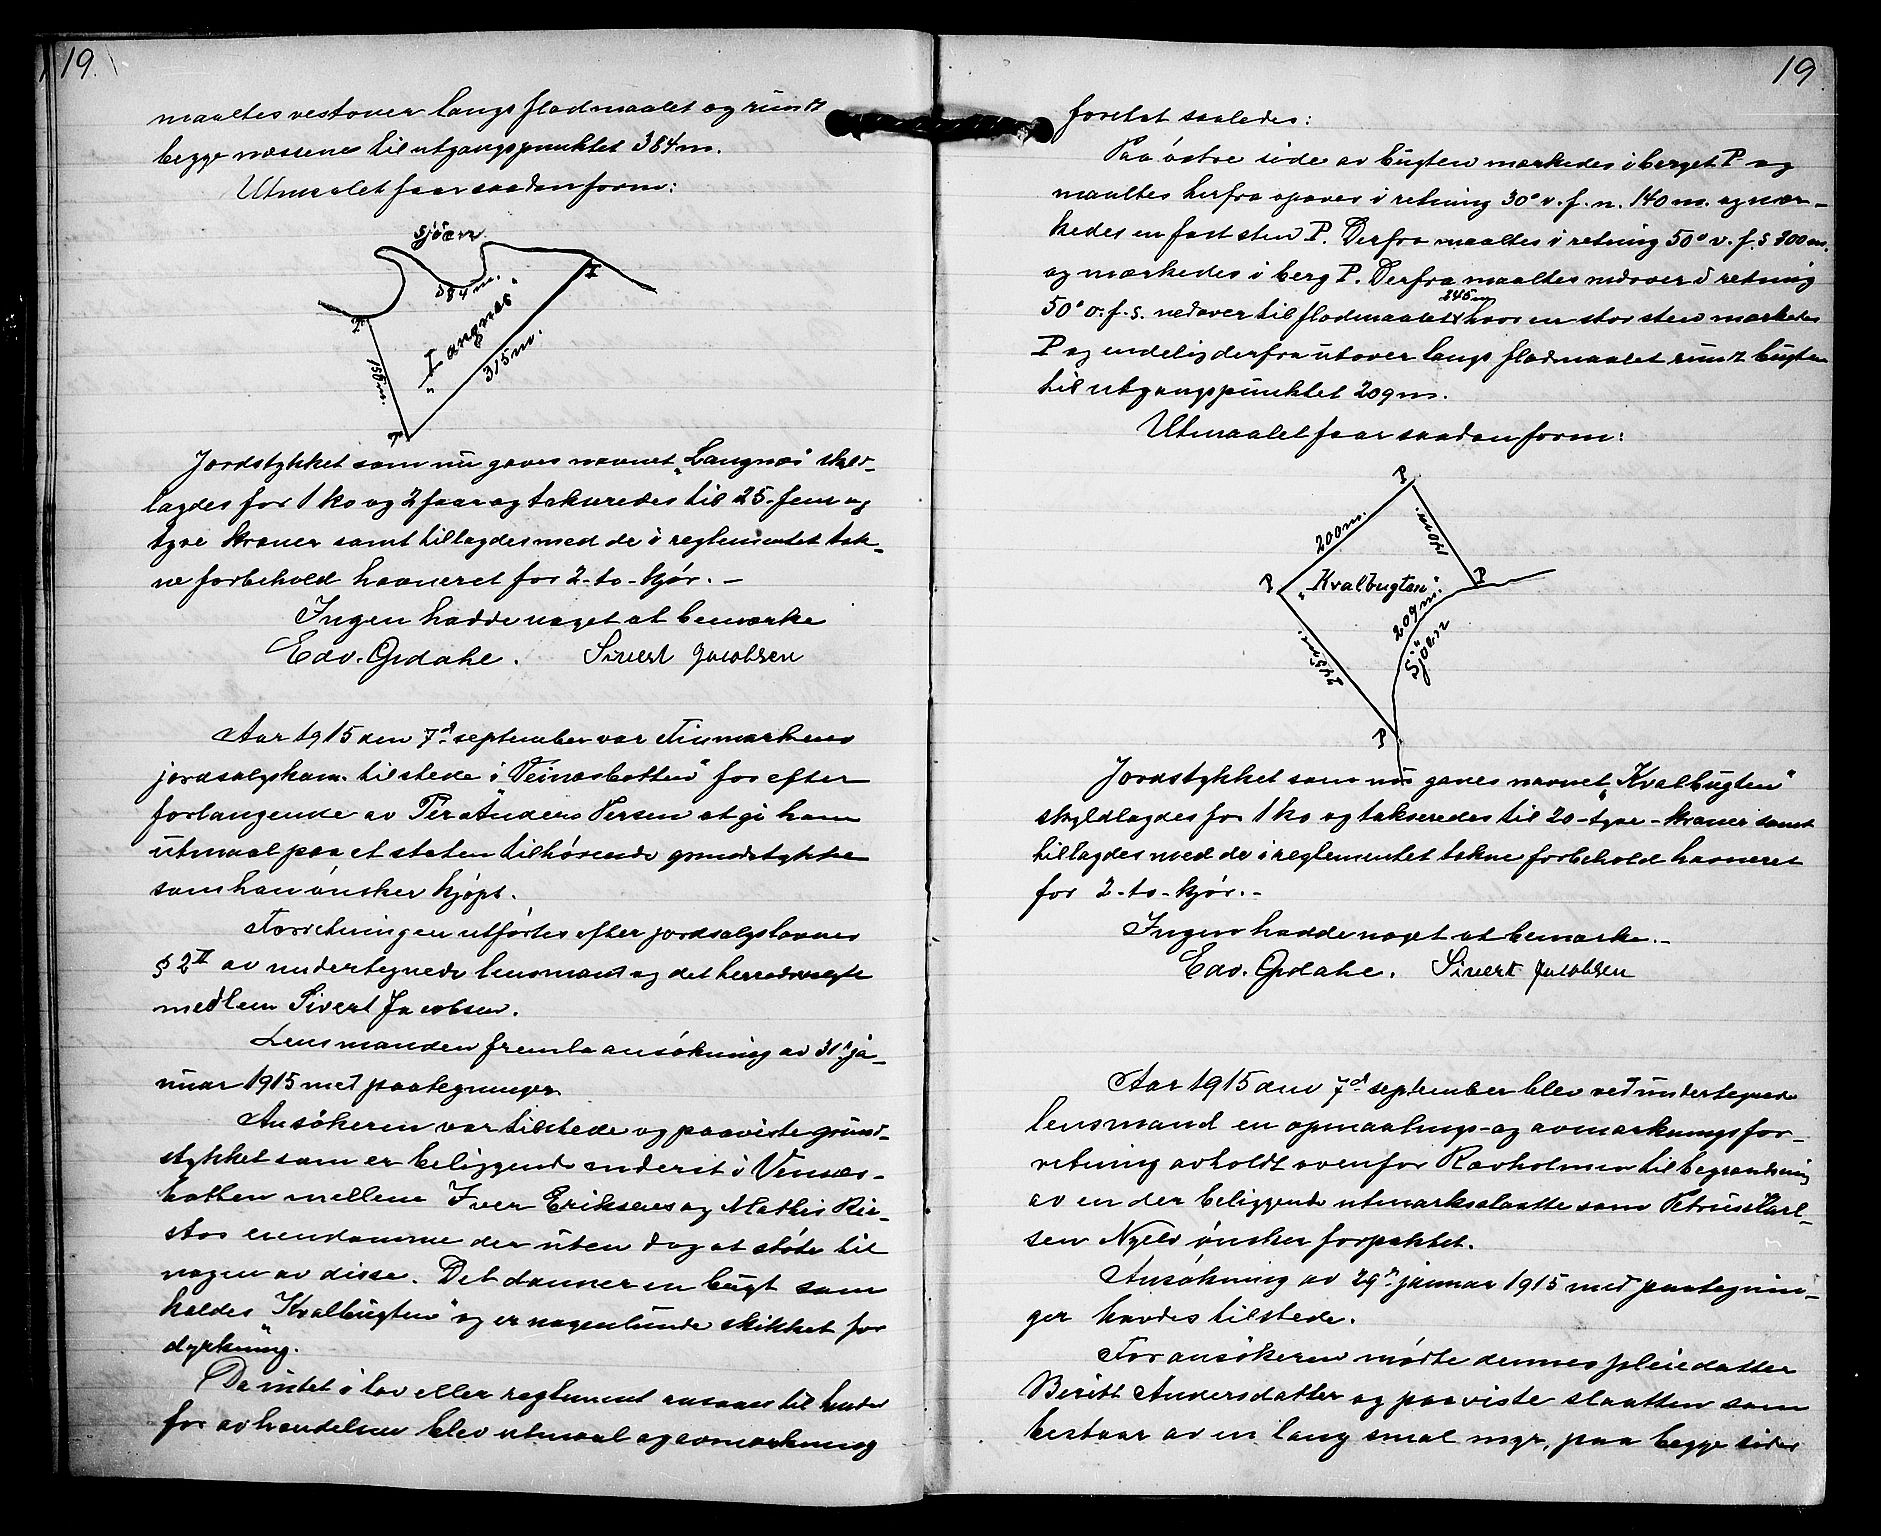 19.
maaltes vestover langs flodmaalet og rundt
begge næssene til utgangspunktet 384 m.
Utmaalet faar saadan form:
Sjöen
384 m.
"Langnes"
315 m.
150 m.
Jordstykket som nu gaves navnet "Langnæs" skyld-
lagdes for 1 ko og 2 faar og takseredes til 25 - fem og
tyve kroner samt tillagdes med de i reglementet tak-
ne forbehold havneret for 2 - to - kjør. -
Ingen hadde noget at bemerke
Edv. Grdahe. Sivert Jacobsen
Aar 1915 den 7d september var Finmarkens
jordsalgskom. tilstede i "Veinesbotten" for efter
forlangende av Per Anders Persen at gi ham
utmaal paa et staten tilhørende grundstykke
som han ønsker kjøpt.
Forretningen utførtes efter jordsalgslovens
§ 2 II av undertegnede lensmand og det herredsvalgte
medlem Sivert Jacobsen.
Lensmanden fremla ansökning av 31te ja-
nuar 1915 med paategninger.
Ansökeren var tilstede og paaviste grund-
stykket som er beliggende nederst i Venæs-
botten mellem Iver Eriksens og Mathis Ris-
tos eiendomme der uten dog at støte til
nogen av disse. Det danner en bugt som
kaldes "Kvalbugten" og er nogenlunde skikket for
dyrkning.
Da intet i lov eller reglement ansaaes til hinder
for avhændelsen blev utmaal og avmerkning
19.
foretat saaledes:
Paa østre side av bugten merkedes i berget P og
maaltes herfra opover i retning 30° v. f. n. 140 m. og mer-
kedes en fast sten P. Derfra maaltes i retning 50° v. f. s 200 m.
og mærkedes i berg P. Derfra maaltes nedover i retning
50° o. f. s. nedover til flodmaalet 245 m hvor en stor sten merkedes
P og endelig derfra utover langs flodmaalet rundt bugten
til utgangspunktet 209 m.
Utmaalet faar saadan form:
P
200 m.
140 m.
P
"Kvalbugten"
P
209 m.
Sjöen
245 m.
P
Jordstykket som nu gaves navnet "Kvalbugten"
skyldlagdes for 1 ko og takseredes til 20 - tyve - kroner samt
tillagdes med de i reglementet takne forbehold havneret
for 2 - to - kjør. -
Ingen hadde noget at bemerke. -
Edv. Grdahe. Sivert Jacobsen
Aar 1915 den 7d september blev ved undertegnede
lensmand en opmaalings- og avmerkningsfor-
retning avholdt ovenfor Ravholmen til begrændsning
av en der beliggende utmarksslaatte som Petrus Karl-
sen Nyelv ønsker forpaktet.
Ansökning av 29de januar 1915 med paategnin-
ger havdes tilstede.
For ansökeren mødte dennes pleiedatter
Beritt Andersdatter og paaviste slaatten som
bestaar av en lang smal myr, paa begge sider